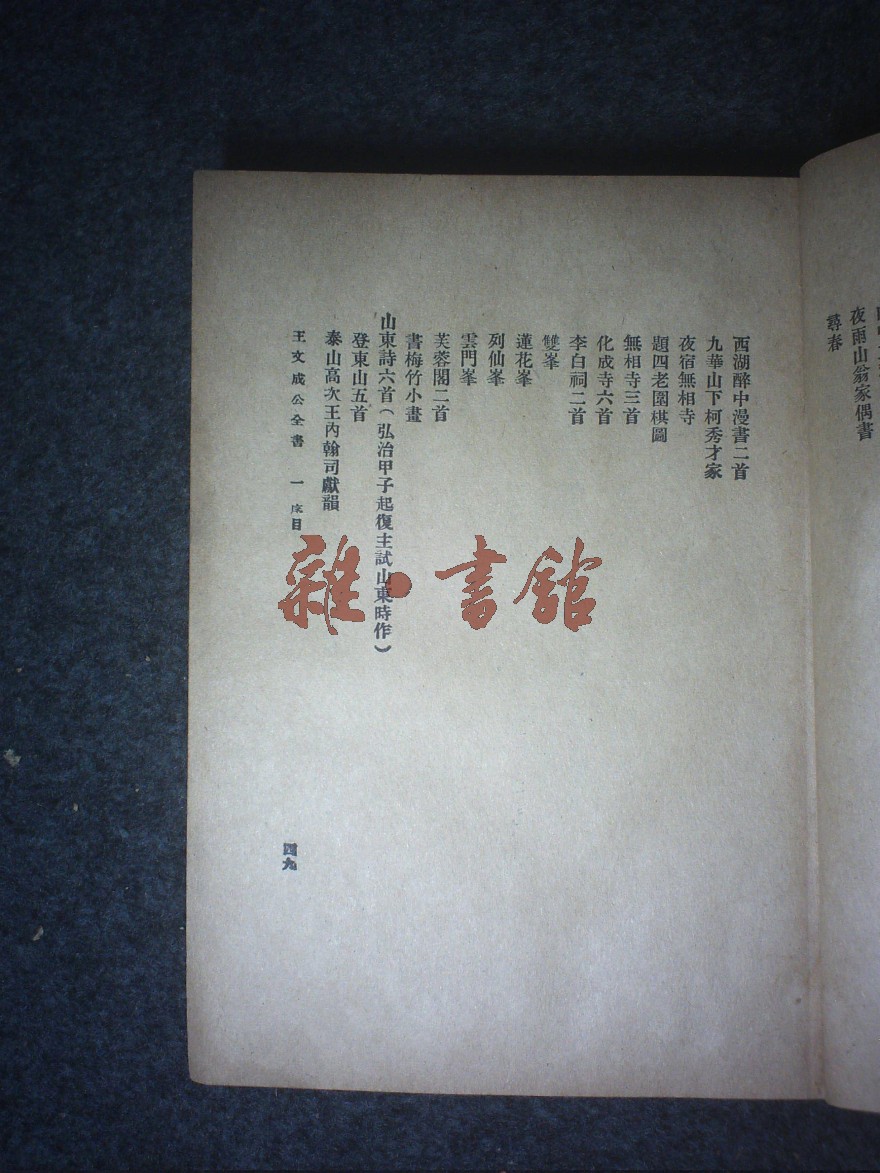 夜雨山翁家偶書
尋春
西湖醉中漫書二首
九華山下柯秀才家
夜宿無相寺
題四老圍棋圖
無相寺三首
化成寺六首
李白祠二首
雙峯
蓮花峯
列仙峯
雲門峯
芙蓉閣二首
書梅竹小畫
山東詩六首（弘治甲子起復主試山東時作）
登東山五首
泰山高次王內翰司獻韻
王文成公全書 一 序目
四九
雜·書館